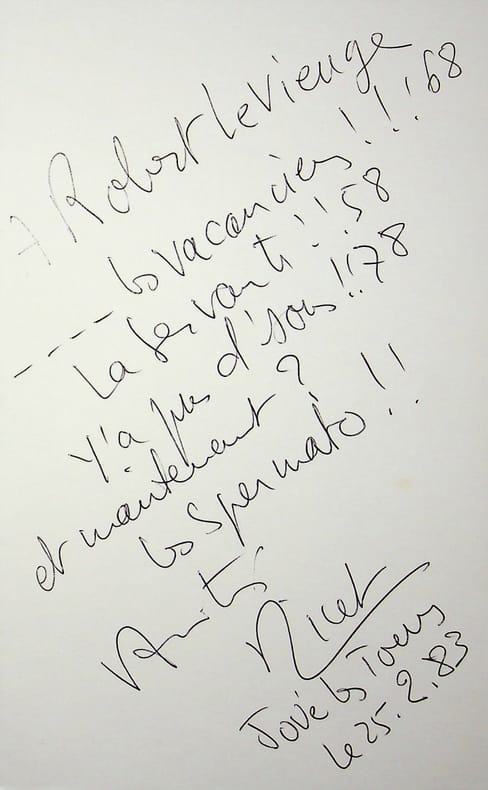 A Robert le Vieuge
les vacanciers !!! 68
La Servanti !! 58
Y'a pus d'sous !! 78
et maintenant ?
les Spermato !!
Amitiés
Ricet
Joué les Tours
le 25.2.83